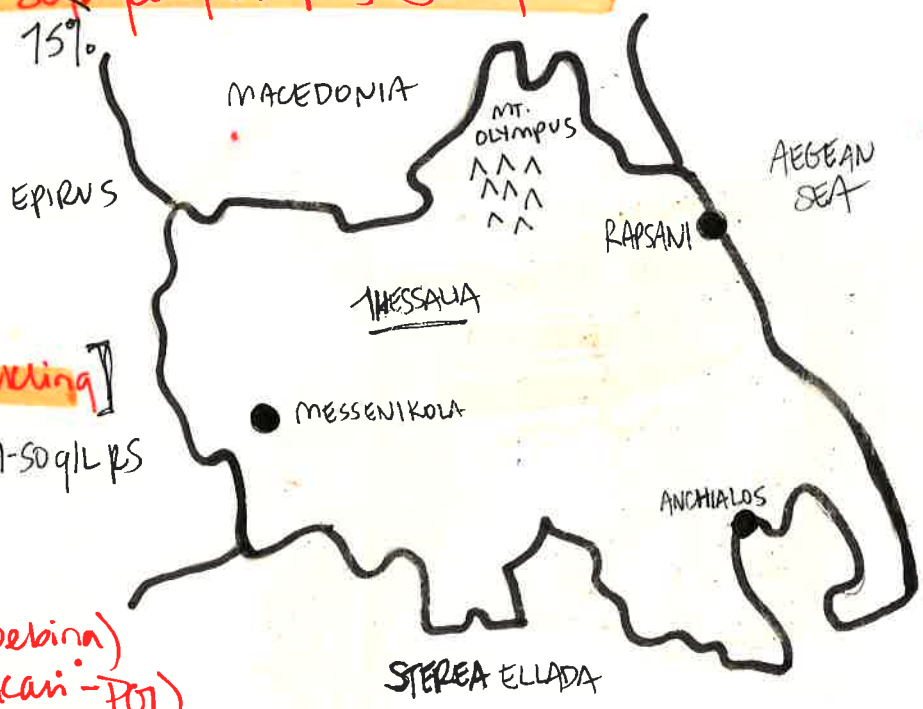 15%
MACEDONIA
MT.
OLYMPUS
AEGEAN
SEA
EPIRUS
RAPSANI
THESSALIA
MESSENIKOLA
g/L RS
ANCHIALOS
STEREA ELLADA